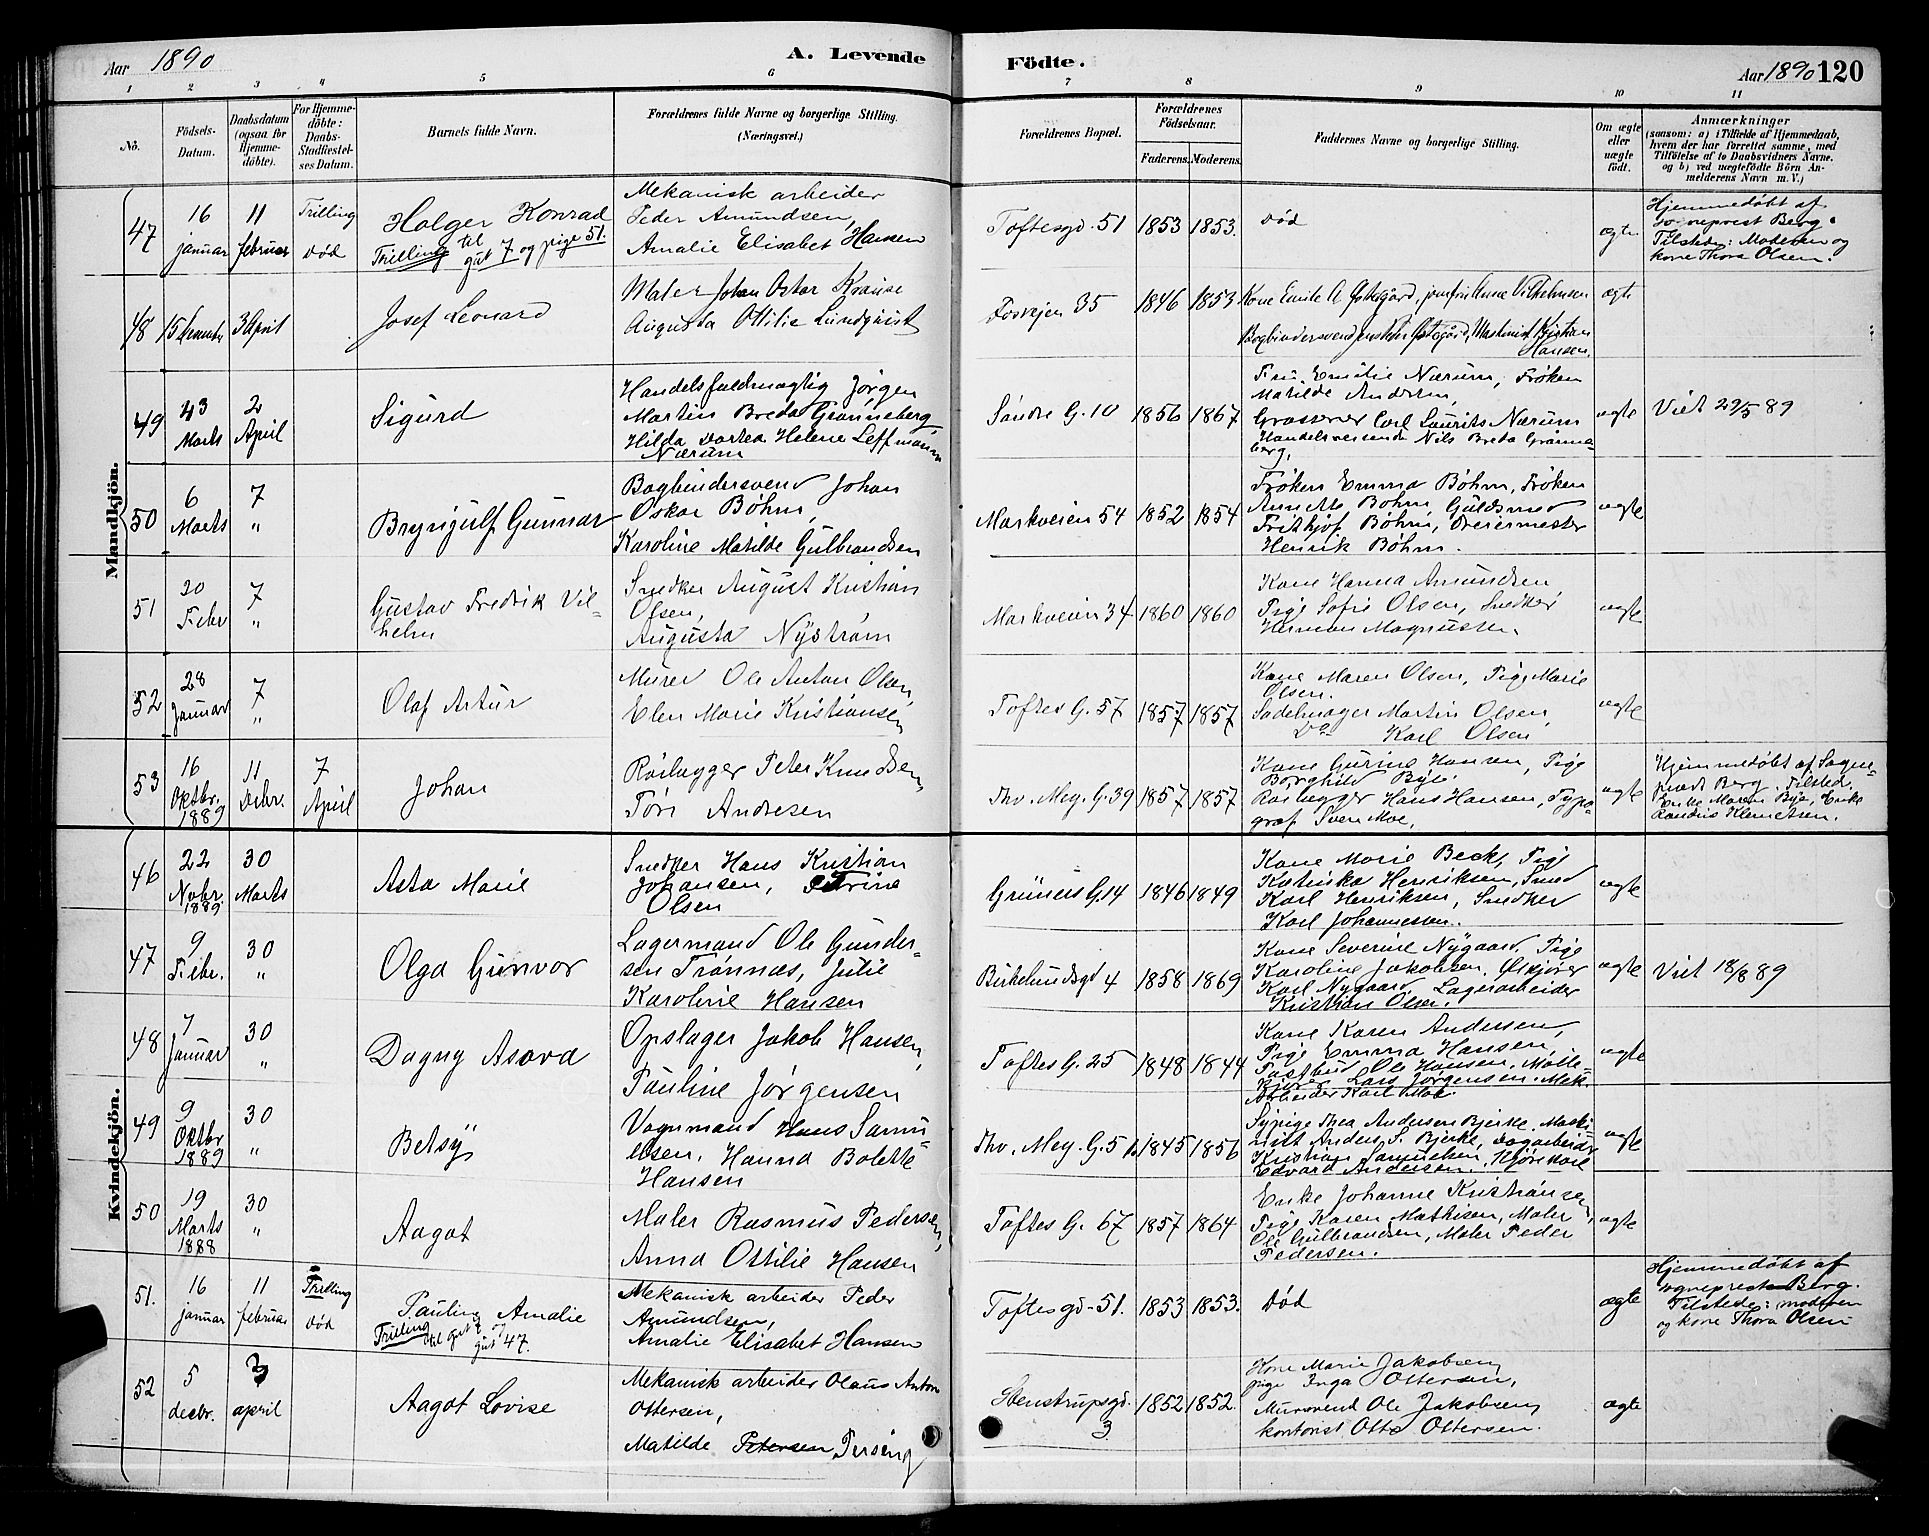 Aar 1890
A. Levende
Födte.
Aar 1890 120
1 2 3 4 5 6 7 8 9 10 11
No.
Födsels-
Datum.
Daabsdatum
(ogsaa for
Hjemme-
döbte).
For Hjemme-
döbte:
Daabs-
Stadfæstel-
ses Datum.
Barnets fulde Navn.
Forældrenes fulde Navne og borgerlige Stilling.
(Næringsvei.)
Forældrenes Bopæl.
Forældrenes
Födselsaar.
Faderens. Moderens.
Faddernes Navne og borgerlige Stilling.
Om ægte
eller
uægte
födt.
Anmærkninger
(saasom: a) i Tilfælde af Hjemmedaab,
hvem der har forrettet samme, med
Tilföielse af to Daabsvidners Navne,
og b) ved uægtefödte Börn An-
melderens Navn m. V.)
Mandkjön.
47
16
januar
11
februar
Trilling
død
Holger Konrad
Trilling til
gut 7 og pige 51.
Mekanisk arbeider
Peder Amundsen,
Amalie Elisabet Hansen
Toftesgd. 51
1853
1853.
død
ægte
Hjemmedøbt af
sogneprest Berg.
Tilstede: Moderen og
kone Thora Olsen.
48
15
3 April
Josef Leonard
Maler Johan Oskar Krause
Augusta Ottilie Lundquist
Fosvejen 35
1846
1853
Kone Emile A Østegård, jomfru Anna Vilhelmsen
Bogbindersvend Østegård, Maskinist Kristian
Hansen.
ægte
49
Marts
2
April
Sigurd
Handelsfuldmægtig Jørgen
Martin Breda Grønneberg,
Hilda Dortea Helene Leffmann
Nærum
Søndre G. 10
1856
1867
Fru Emilie Nærum, Frøken
Matilde Andersen,
Grosserer Carl Laurits Nærum
Handelsreisende Nils Breda Grønne-
berg,
ægte
Viet 29/5 89
50
6
Marts
7
"
Brynjulf Gunnar
Bogbindersvend Johan
Oskar Bøhm,
Karoline Matilde Gulbrandsen
Markveien 54
1852
1854
Frøken Emma Bøhm, Frøken
Annette Bøhm, Guldsmed
Frithjof Bøhm, Dreiermester
Henrik Bøhm.
ægte
51
20
Febr
7
"
Gustav Fredrik Vil-
helm
Snedker August Kristian
Olsen,
Augusta Nystrøm
Markveien 34
1860
1860
Kone Hanna Amundsen
Pige Sofie Olsen, Snedker
Herman Magnussen.
ægte
52
28
Januar
7
"
Olaf Artur
Murer Ole Anton Olsen,
Elen Marie Kristiansen
Toftes G. 57
1857
1857
Kone Maren Olsen, Pige Marie
Olsen.
Sadelmager Martin Olsen,
Do Karl Olsen
ægte
53
16
Oktbr.
1889
11
Debr.
7
April
Johan
Rørlægger Peter Knudsen,
Töri Andresen
Thv. Mey. G. 39
1857
1857
Kone Gurine Hansen, Pige
Borghild Bye.
Rørlegger Hans Hansen, Typo-
graf Sven Moe.
ægte
Hjemmedøbt af Sogne-
prest Berg. Tilsted.
Enke Maren Bye, Enke
Randis Klemetsen.
Kvindekjön.
46
22
Novbr
1889
30
Marts
Asta Marie
Snedker Hans Kristian
Johansen, Petrine
Olsen
Grüners G. 14
1846
1849
Kone Marie Beck, Pige
Katinka Henriksen, Smed
Karl Henriksen, Snedker
Karl Johannessen.
ægte
47
9
Febr.
30
"
Olga Gunvor
Lagermand Ole Gunder-
sen Trønnæs, Julie
Karoline Hansen
Birkelundsgd 4
1858
1869
Kone Severine Nygaard, Pige
Karoline Jakobsen, Ølkjører
Karl Nygaard, Lagerarbeider
Kristian Olsen.
ægte
Viet 18/8 89
48
7
Januar
30
"
Dagny Asora
Opslager Jakob Hansen,
Pauline Jørgensen
Toftes G. 25
1848
1844
Kone Karen Andersen,
Pige Emma Hansen,
Postbud Ole Hansen, Mølle-
kjører Lars Jørgensen. Mek.
Arbeider Karl Moe.
ægte
49
9
Oktbr
1889
30
"
Betsy
Vognmand Hans Samu-
elsen, Hanna Bolette
Hansen
Thv. Mey. G. 5
1845
1856
Sypige Thea Andersen Bjerke. Maski-
nist Anders S. Bjerke, Dagarbeider
Kristian Samuelsen, Kjørekarl
Edvard Andersen.
ægte
50
19
Marts
1888
30
"
Aagot
Maler Rasmus Pedersen,
Anna Ottilie Hansen
Toftes G. 67
1857
1864
Enke Johanne Kristiansen,
Pige Karen Mathisen, Maler
Ole Gulbrandsen, Maler Peder
Pedersen.
ægte
51.
16
januar
11
februar
Trilling
død
Pauline Amalie
Trilling
til gut 7 og
gut 47.
Mekanisk arbeider Peder
Amundsen,
Amalie Elisabet Hansen
Toftesgd. 51.
1853
1853.
død
ægte
Hjemmedøbt af
sogneprest Berg.
Tilstede: moderen
og kone Thora Olsen
52
5
decbr.
3
april
Aagot Lovise
Mekanisk arbeider Olaus Anton
Ottersen,
Matilde Petersen Persen
Stenstrupsgd.
3
1852
1852.
Kone Marie Jakobsen,
pige Inga Ottersen,
Mursvend Ole Jakobsen,
kontorist Otto Ottersen.
ægte